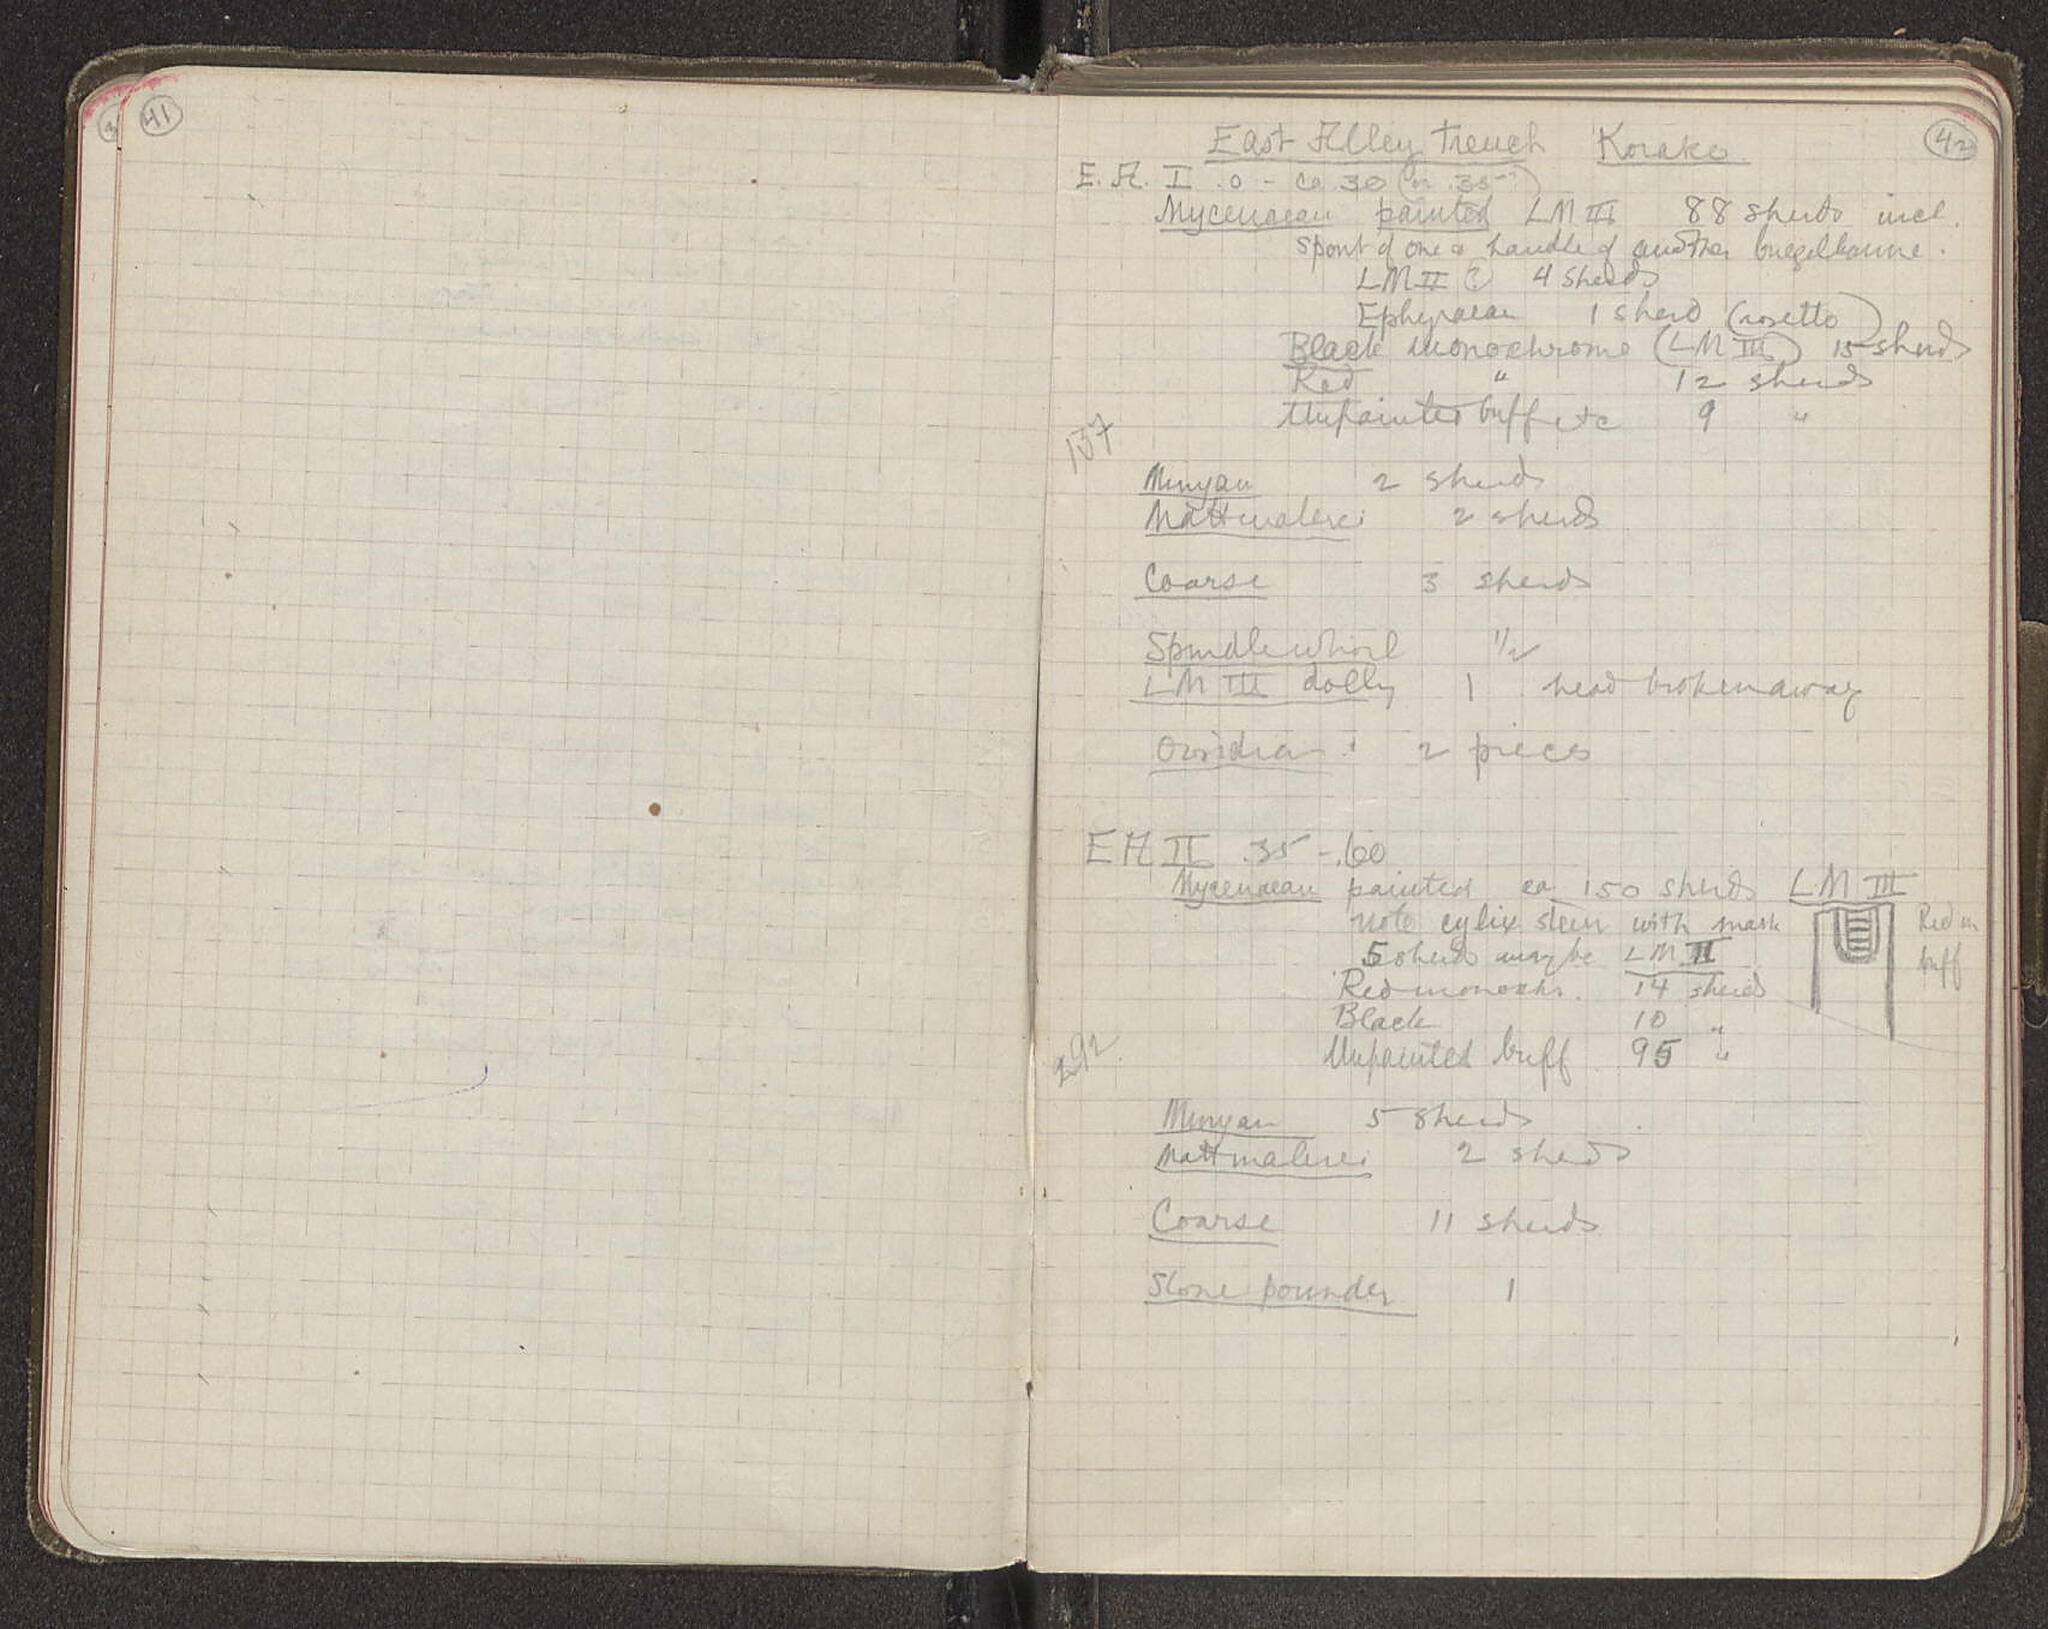 41
42
East Alley Trench Korako
E. A. I .0 - ca .30 (or .35)
Mycenaean painted LM III 88 sherds incl.
spout of one & handle of another buegelkanne.
LM II (?) 4 sherds
Ephyraean 1 sherd (rosette)
Black monochrome (LM III) 15 sherds
Red " 12 sherds
Unpainted buff etc 9 "
137
Minyan 2 sherds
Mattmalerei 2 sherds
Coarse 3 sherds
Spindle whorl 1/2
LM III dolly 1 head broken away
Obsidian 2 pieces
E A II .35 - .60
Mycenaean painted ca 150 sherds LM III
note cylix stem with mark
Red on
buff
5 sherds maybe LM II
Red monochr. 14 sherds
Black 10 "
Unpainted buff 95 "
292
Minyan 5 sherds
Mattmalerei 2 sherds
Coarse 11 sherds
Stone pounder 1